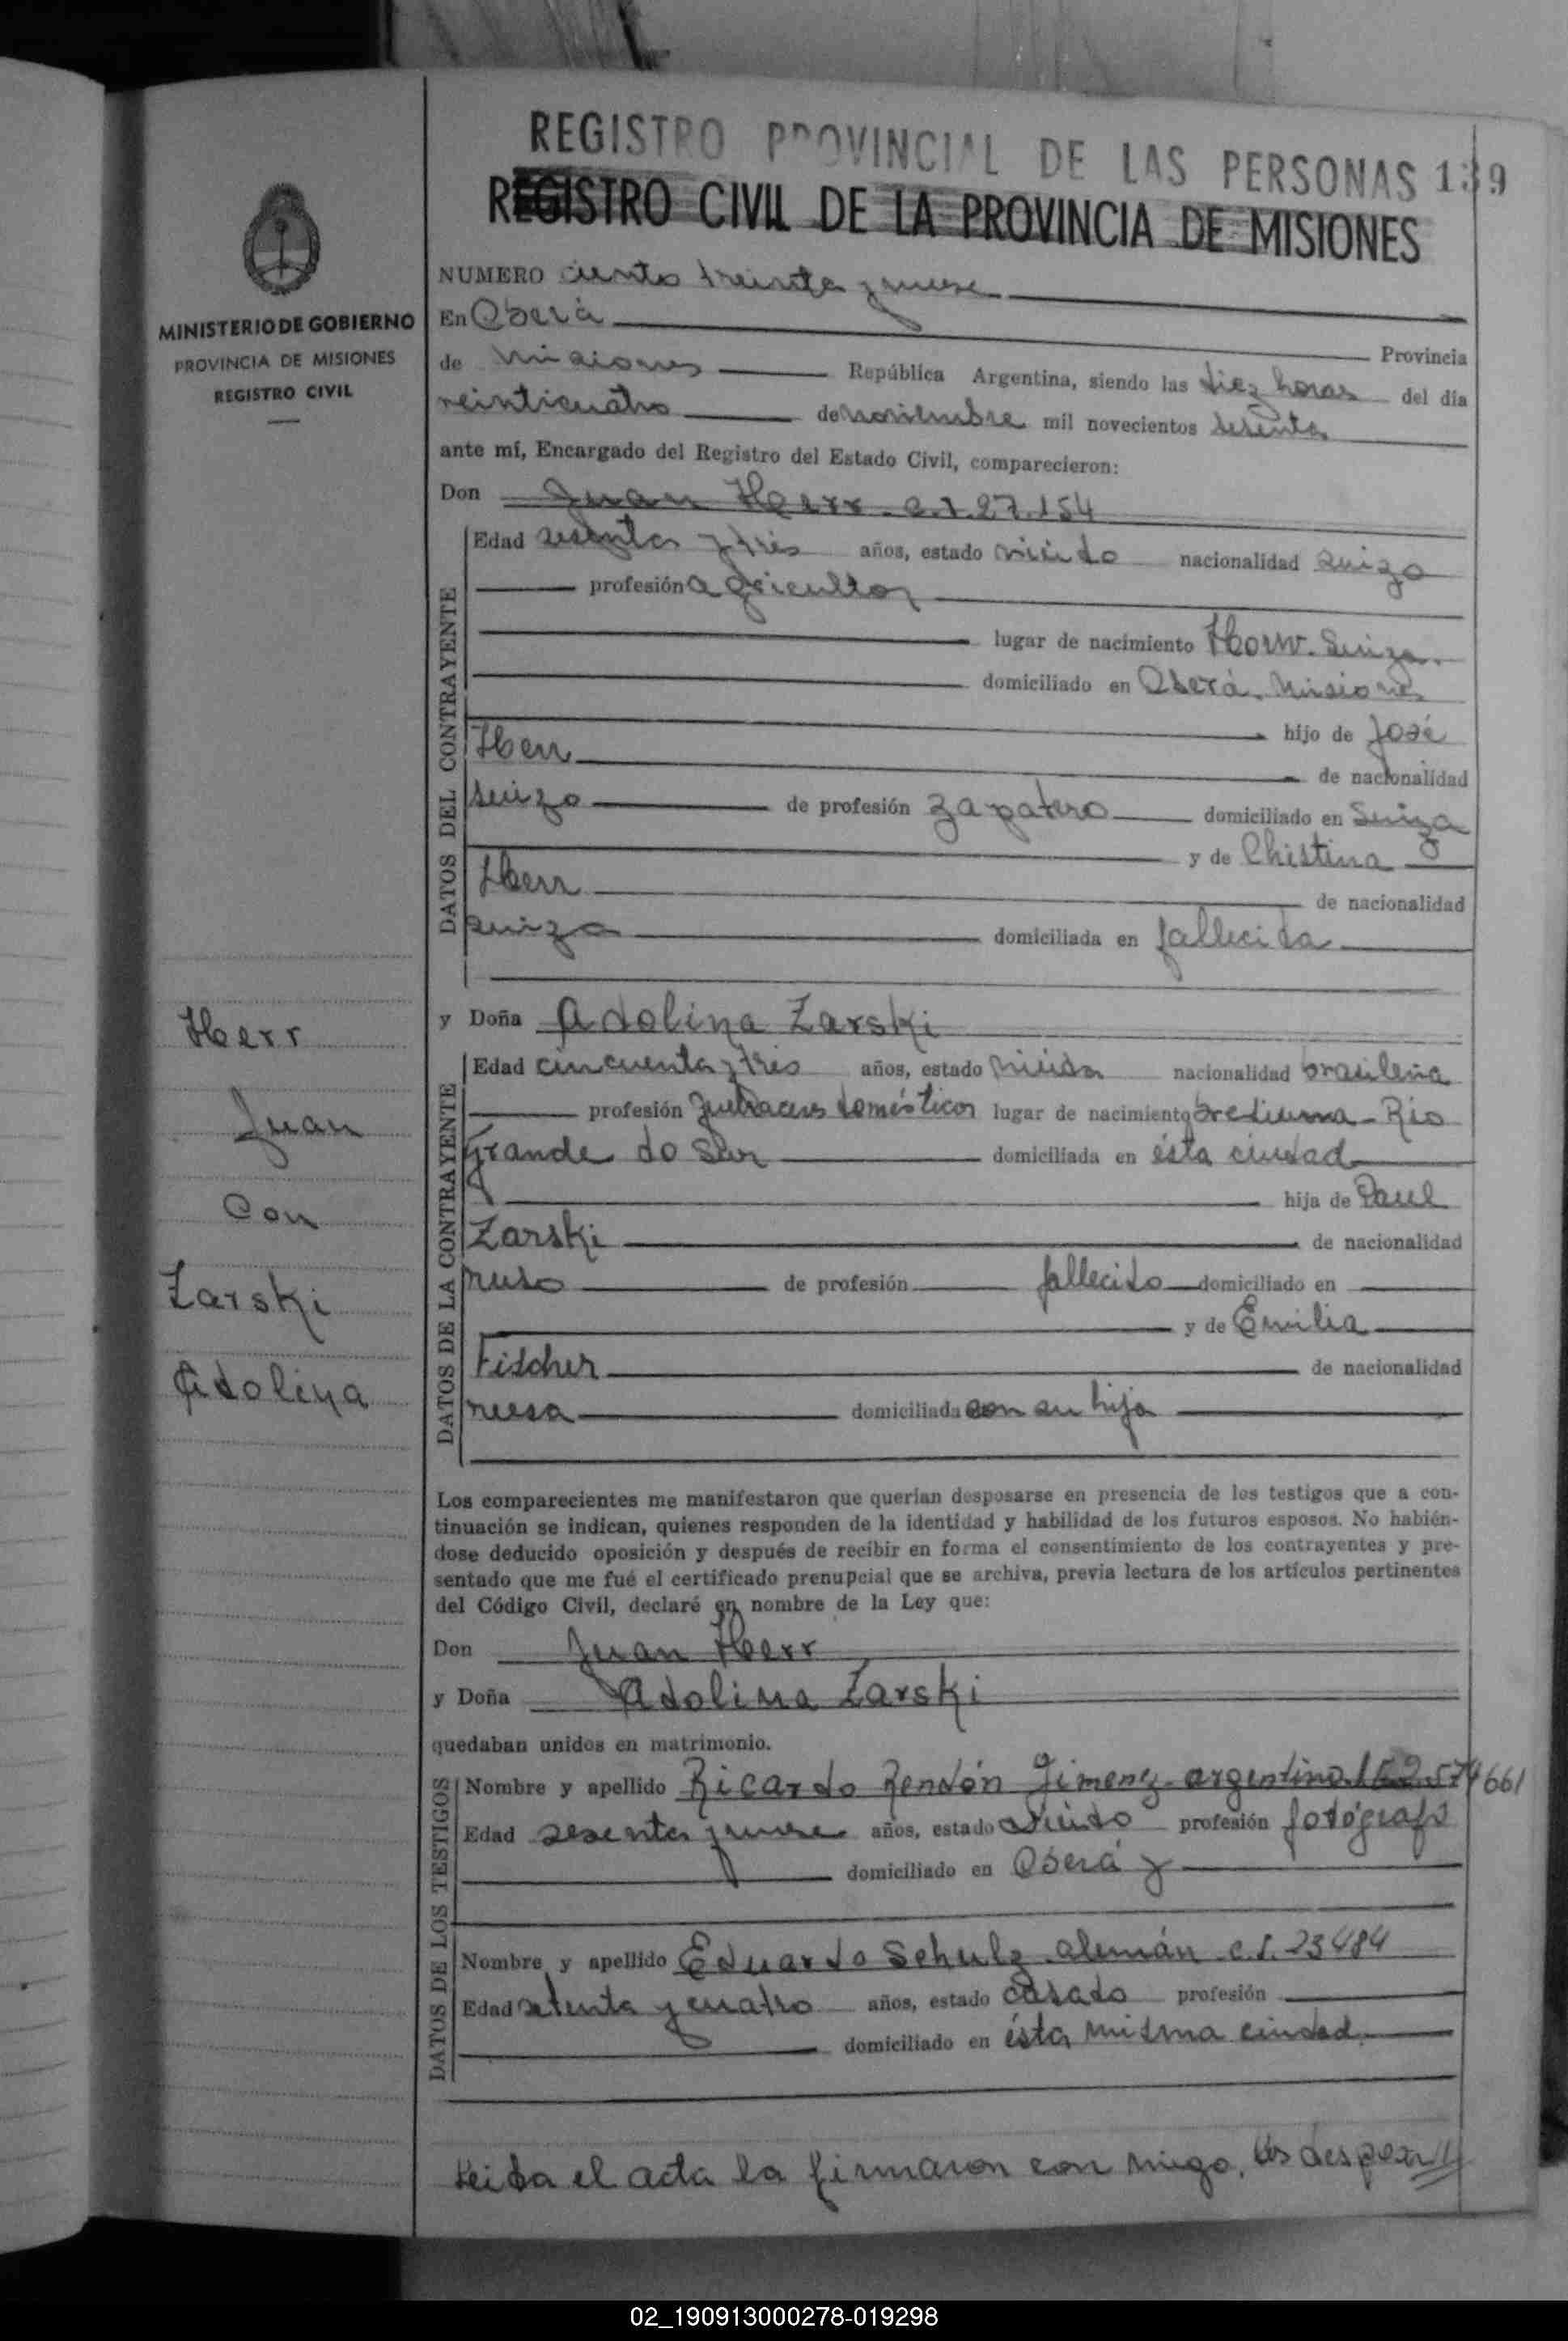 REGISTRO PROVINCIAL DE LAS PERSONAS 139
REGISTRO CIVIL DE LA PROVINCIA DE MISIONES
MINISTERIO DE GOBIERNO
PROVINCIA DE MISIONES
REGISTRO CIVIL
NUMERO ciento treinta y nueve
En Oberá Provincia
de Misiones República Argentina, siendo las diez horas del día
veinticuatro de noviembre mil novecientos sesenta
ante mí, Encargado del Registro del Estado Civil, comparecieron:
Don Juan Herr. C.I. 27.154
DATOS DEL CONTRAYENTE
Edad sesenta y tres años, estado viudo nacionalidad suizo
profesión agricultor
lugar de nacimiento Horw. Suiza.
domiciliado en Oberá. Misiones
hijo de José
Herr de nacionalidad
suizo de profesión zapatero domiciliado en Suiza
y de Chistina
Herr de nacionalidad
suiza domiciliada en fallecida
Herr
Juan
Con
Zarski
Adolina
y Doña Adolina Zarski
DATOS DE LA CONTRAYENTE
Edad cincuenta y tres años, estado viuda nacionalidad brasileña
profesión quehaceres domésticos lugar de nacimiento Rio
Grande do Sur domiciliada en ésta ciudad
hija de Paul
Zarski de nacionalidad
ruso de profesión fallecido domiciliado en
y de Emilia
Fischer de nacionalidad
rusa domiciliada con su hija
Los comparecientes me manifestaron que querían desposarse en presencia de los testigos que a con-
tinuación se indican, quienes responden de la identidad y habilidad de los futuros esposos. No habién-
dose deducido oposición y después de recibir en forma el consentimiento de los contrayentes y pre-
sentado que me fué el certificado prenupcial que se archiva, previa lectura de los artículos pertinentes
del Código Civil, declaré en nombre de la Ley que:
Don Juan Herr
y Doña Adolina Zarski
quedaban unidos en matrimonio.
DATOS DE LOS TESTIGOS
Nombre y apellido Ricardo Rendón Gimenez argentino
Edad sesenta y nueve años, estado viudo profesión fotógrafo
domiciliado en Oberá y
Nombre y apellido Eduardo Schulz alemán C.I. 23484
Edad setenta y cuatro años, estado casado profesión
domiciliado en ésta misma ciudad.
Leida el acta la firmaron con migo, los
02_190913000278-019298